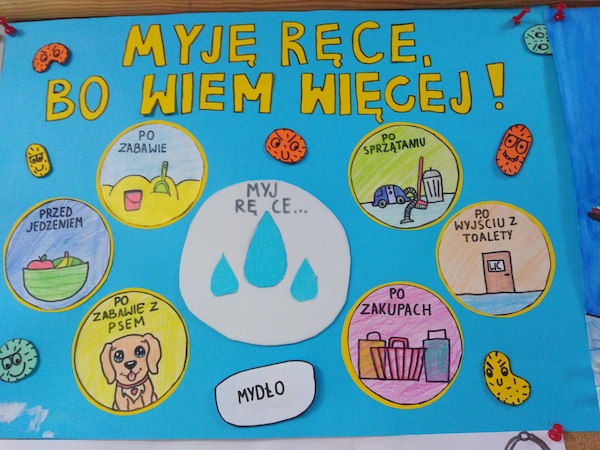 MYJĘ RĘCE,
BO WIEM WIĘCEJ!
PO
ZABAWIE
PO
SPRZĄTANIU
MYJ
RĘCE...
PRZED
JEDZENIEM
PO
WYJŚCIU Z
TOALETY
WC
PO
ZABAWIE Z
PSEM
PO
ZAKUPACH
MYDŁO